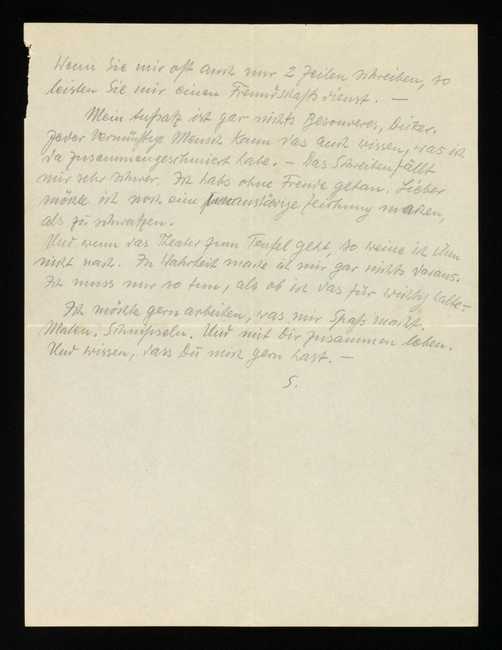 Wenn Sie mir oft auch nur 2 Zeilen schreiben, so
leisten Sie mir einen Freundschaftsdienst. —
Mein Aufsatz ist gar nichts Besonderes,
Jeder vernünftige Mensch kann das auch wissen, was ich
da zusammengeschmiert habe. – Das Schreiben fällt
mir sehr schwer. Ich habs ohne Freude getan. Lieber
möchte ich noch eine Zeichnung machen,
als zu schwatzen.
Und wenn das Theater zum Teufel geht, so weine ich ihm
nicht nach. In Wahrheit mache ich mir gar nichts daraus.
Ich muss nur so tun, als ob ich das für wichtig halte.
Ich möchte gern arbeiten, was mir Spaß macht.
Malen. Schnipseln. Und mit Dir zusammen leben.
Und wissen, dass Du mich gern hast. —
S.